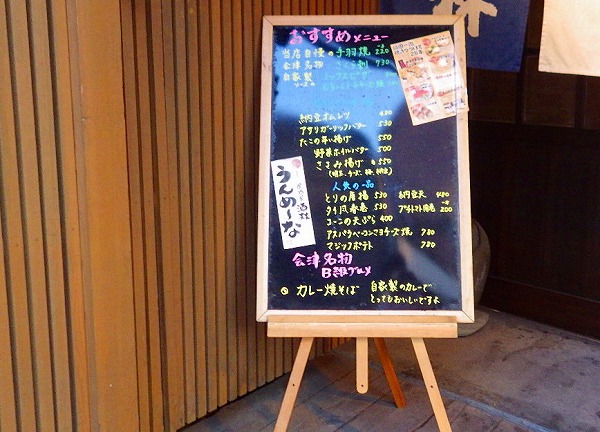 おすすめメニュー
当店自慢の手羽焼 220
会津名物 さくら刺 730
自家製 ミックスピザ
ソースの
納豆オムレツ 480
アサリガーリックバター 530
たこの辛い揚げ 550
野菜ホイルバター 500
ささみ揚げ 550
人気の一品
とりの唐揚 530 納豆天 480
タイ風春巻 530 プチトマト 200
コーンの天ぷら 400
アスパラベーコンマヨチーズ焼 780
マジックポテト 780
会津名物
B級グルメ
カレー焼そば 自家製のカレーで
とってもおいしいですよ
酒林
うんめ〜な
林